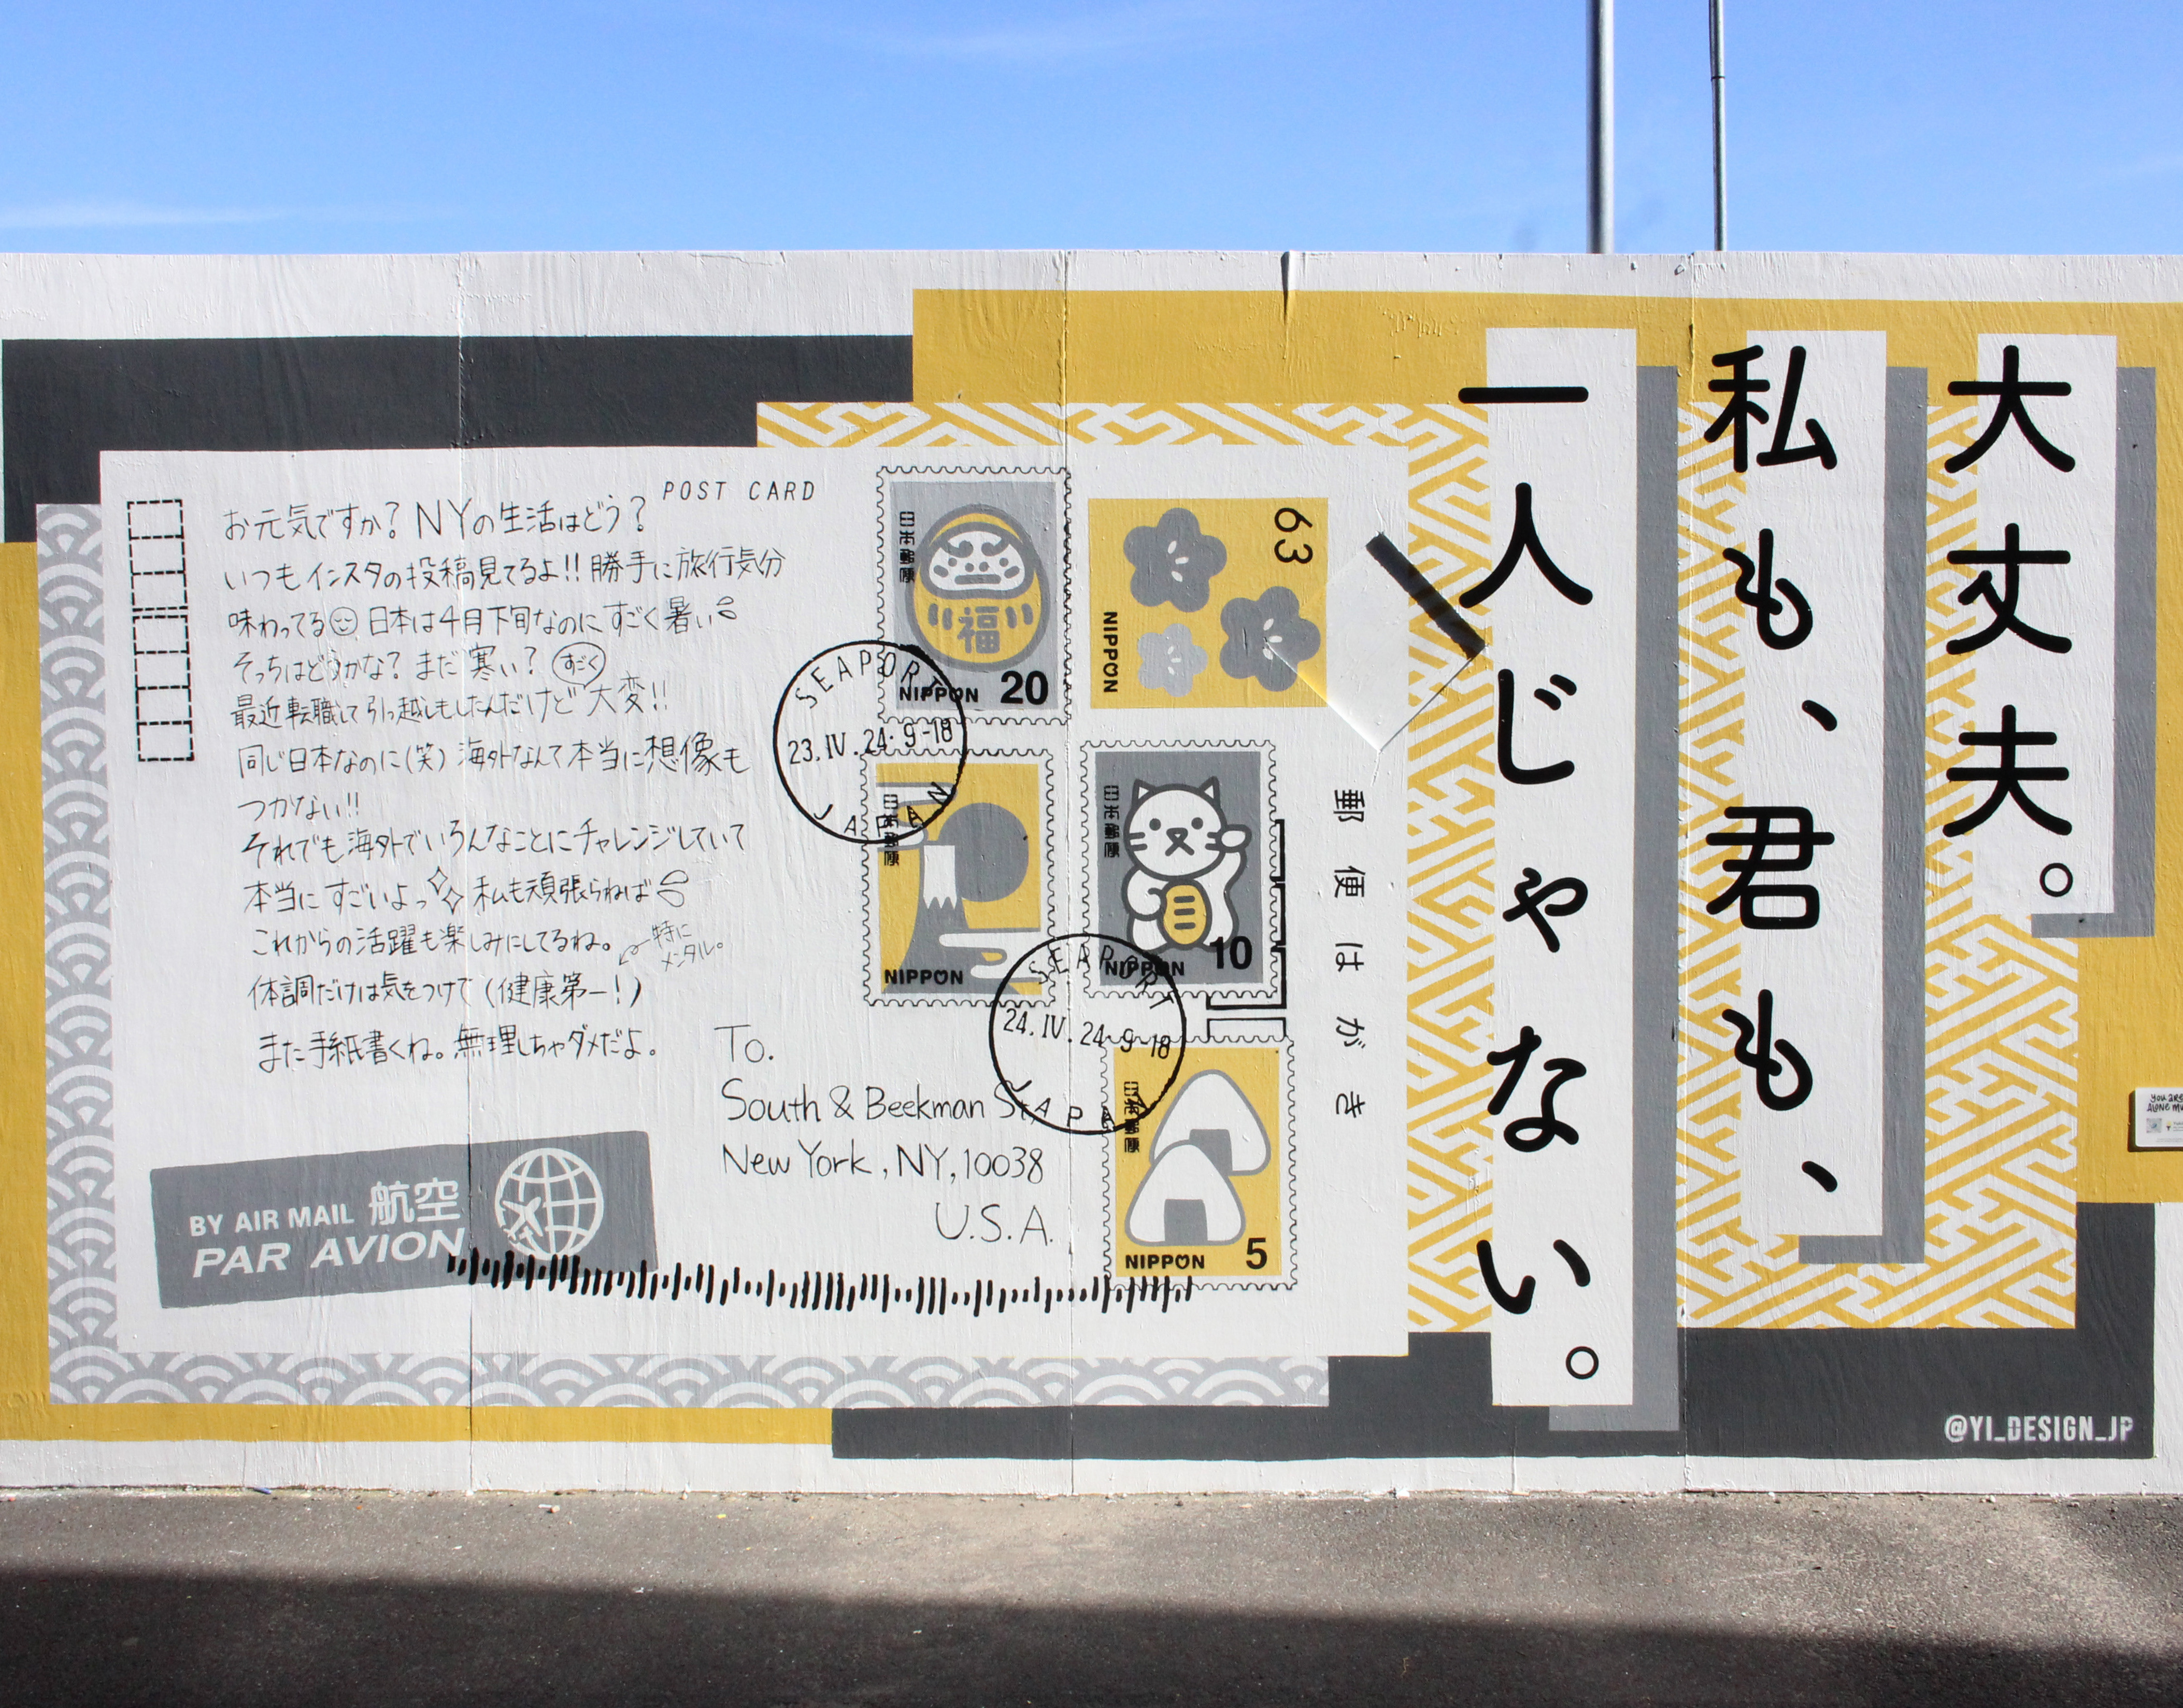 大丈夫。
私も、君も、
一人じゃない。
POST CARD
お元気ですか？NYの生活はどう？
いつもインスタの投稿見てるよ!!勝手に旅行気分
味わってる 日本は4月下旬なのにすごく暑い
そっちはどうかな？まだ寒い？
すごく
最近転職して引っ越しもしたんだけど大変!!
同じ日本なのに(笑)海外なんて本当に想像も
つかない!!
それでも海外でいろんなことにチャレンジしていて
本当にすごいよっ 私も頑張らねば
これからの活躍も楽しみにしてるね。
特に
メンタル。
体調だけは気をつけて(健康第一!)
また手紙書くね。無理しちゃダメだよ。
To.
South & Beekman St,
New York, NY, 10038
U.S.A.
BY AIR MAIL 航空
PAR AVION
日本郵便
福
NIPPON 20
63
NIPPON
SEAPORT
23.IV.24.9-18
JAPAN
日本郵便
NIPPON
日本郵便
NIPPON 10
SEAPORT
24.IV.24.9-18
JAPAN
日本郵便
NIPPON 5
郵便はがき
@YI_DESIGN_JP